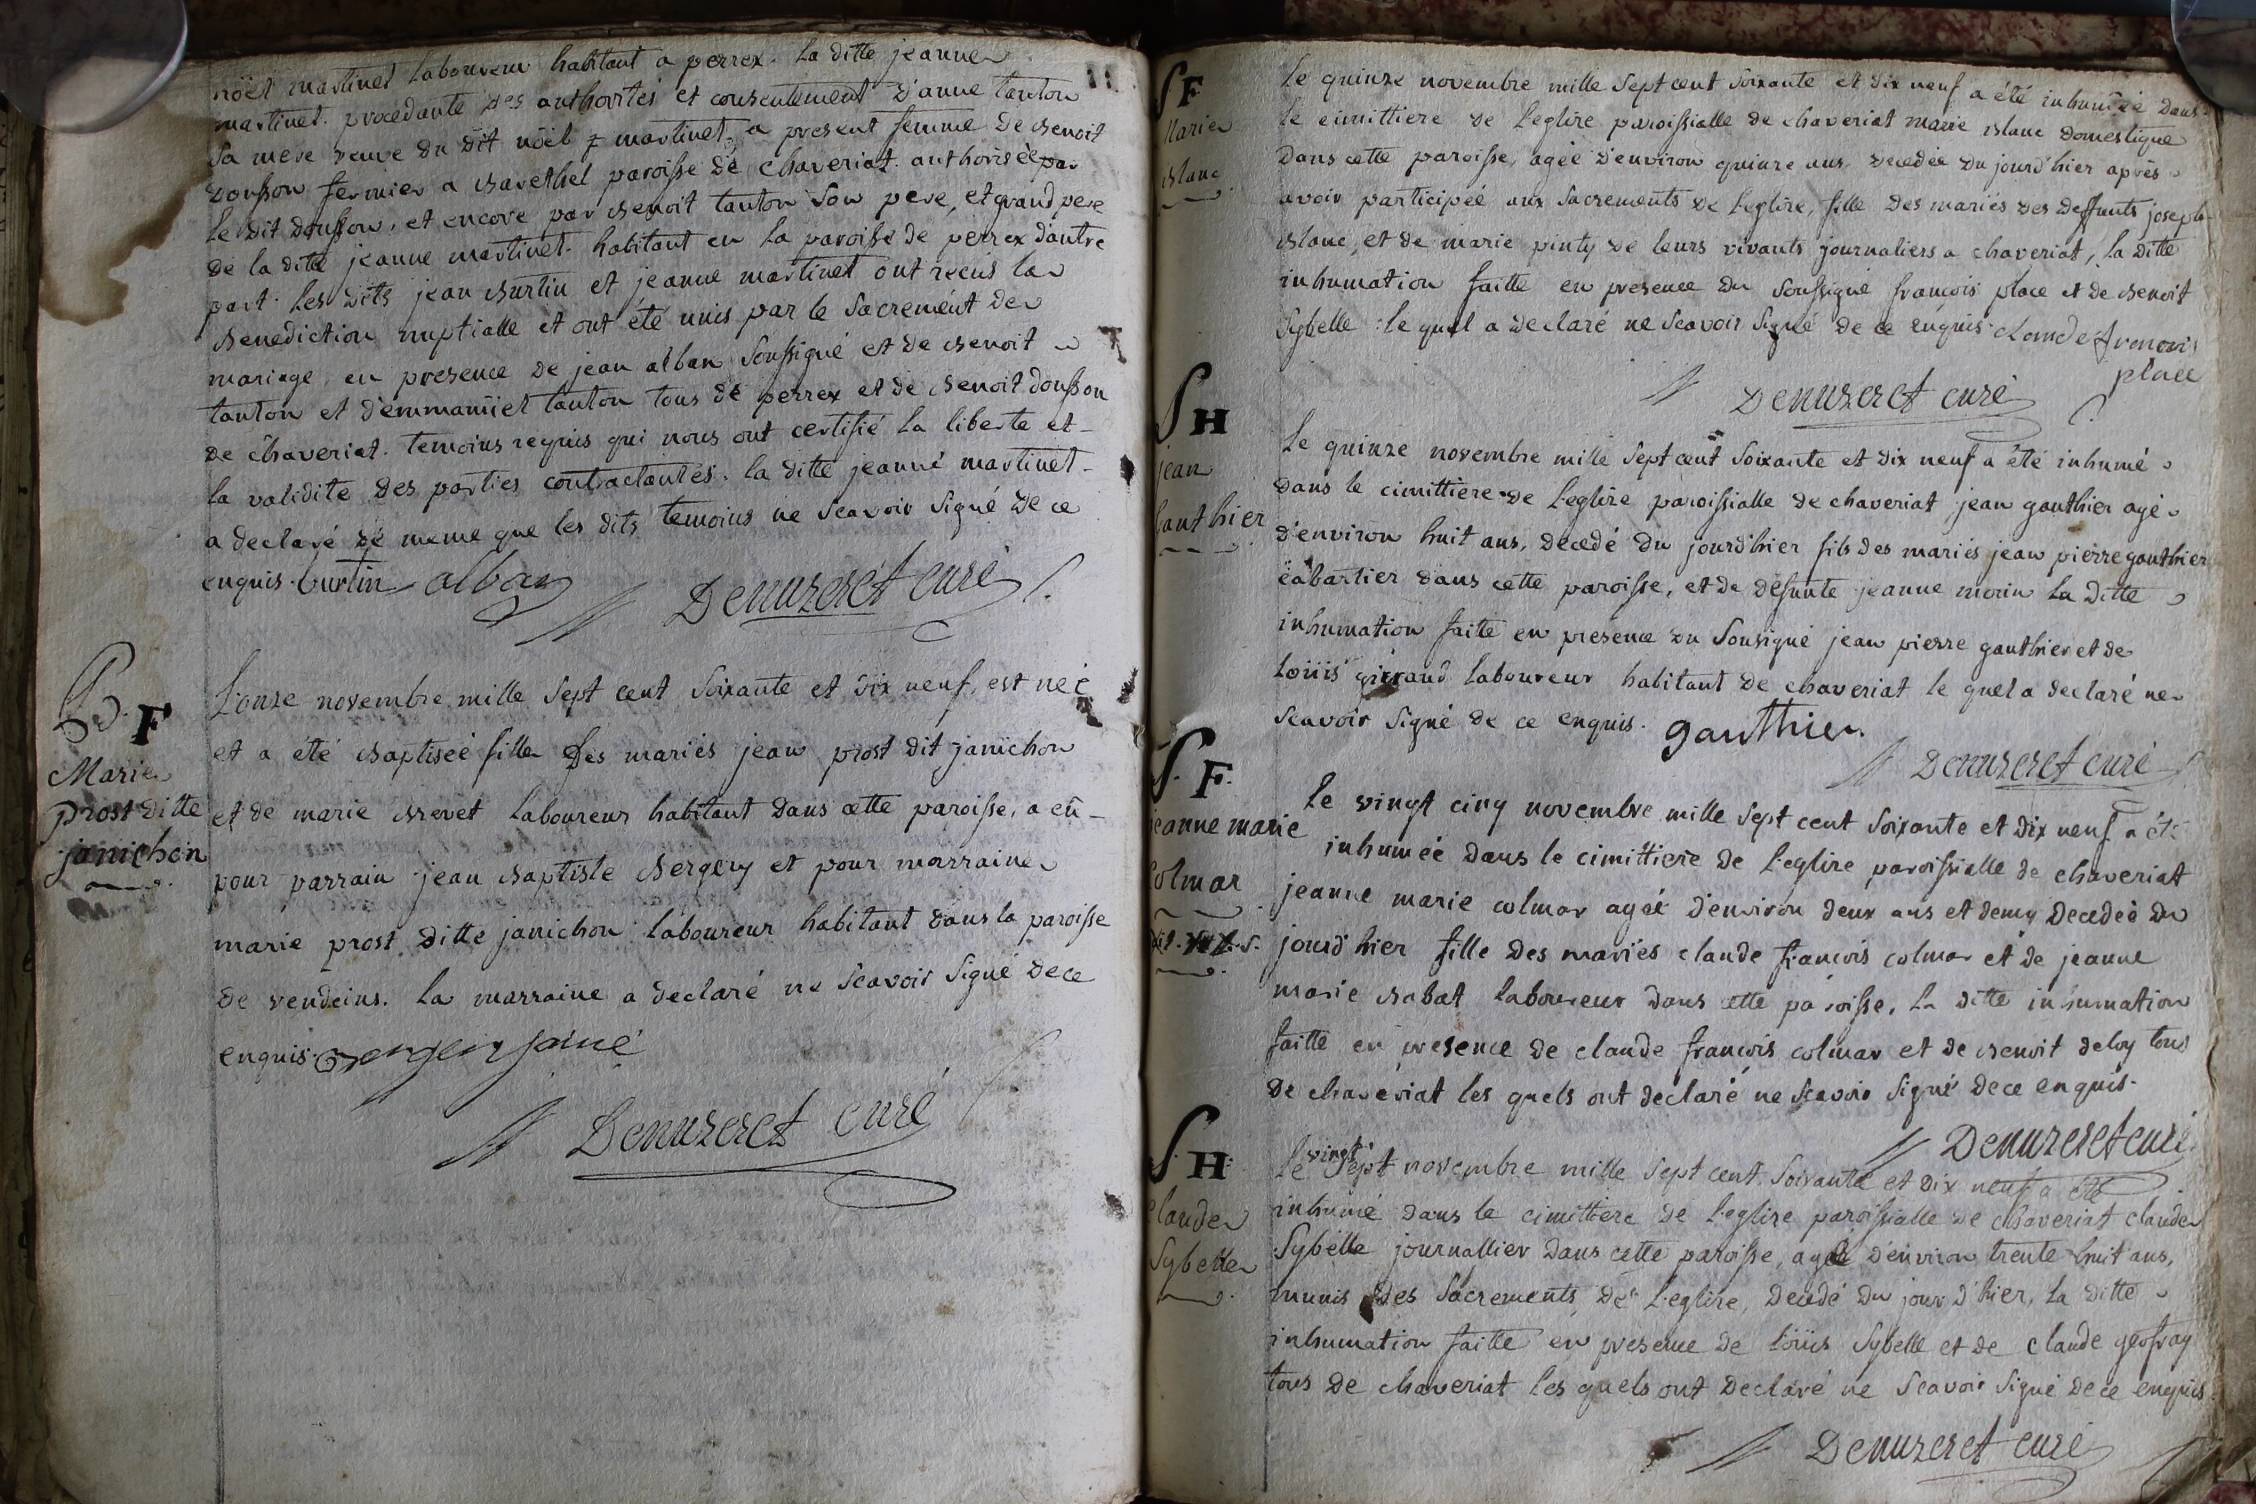 noël martinet laboureur habitant a perrex. la ditte jeanne
martinet. procedante des authorités et consentement d'anne tanton
sa mere veuve du dit nöel martinet, a present femme de benoit
douffon fermier a paroisse de chaveriat. authorisée par
le dit douffon, et encore par benoit tanton son pere, et grand pere
de la ditte jeanne martinet. habitant en la paroisse de perrex d'autre
part. les dits jean burtin et jeanne martinet ont recus la
benediction nuptialle et ont été unis par le sacrement de
mariage, en presence de jean alban soussigné et de benoit
tanton et d'emmanüel tanton tous de perrex et de benoit douffon
de chaveriat. temoins requis qui nous ont certifié la liberte et
la validite des parties contractantes. la ditte jeanne martinet
a declaré de meme que les dits temoins ne scavoir signé de ce
enquis. burtin alban Denuzeret curé
B. F
Marie
prost ditte
janichon
L'onze novembre mille sept cent soixante et dix neuf, est neé
et a été baptiseé fille des mariés jean prost dit janichon
et de marie brevet laboureur habitant dans cette paroisse, a eü
pour parrain jean baptiste bergery et pour marraine
marie prost ditte janichon laboureur habitant dans la paroisse
de vendeins. la marraine a declaré ne scavoir signé de ce
enquis. Denuzeret curé
11
S F
Marie
blanc
le quinze novembre mille sept cent soixante et dix neuf a été inhumeé dans
le cimittiere de l'eglise paroissialle de chaveriat marie blanc domestique
dans cette paroisse, ageé d'environ quinze ans, decedée du jourd'hier après
avoir participéé aux sacrements de l'eglise, fille des mariés des deffunts joseph
blanc, et de marie pinty de leurs vivants journaliers a chaveriat, la ditte
inhumation faitte en presence du soussigné francois place et de benoit
Sybelle: le quel a declaré ne scavoir signé de ce enquis. claude francois
place
Denuzeret curé
S H
jean
Gauthier
le quinze novembre mille sept cent soixante et dix neuf a été inhumé
dans le cimittiere de l'eglise paroissialle de chaveriat jean gauthier agé
d'environ huit ans, decedé du jourd'hier fils des mariés jean pierre gauthier
cabartier dans cette paroisse, et de défunte jeanne morin la ditte
inhumation faitte en presence du sousigné jean pierre gauthier et de
loüis girraud laboureur habitant de chaveriat le quel a declaré ne
scavoir signé de ce enquis. gauthier
Denuzeret curé
S. F.
jeanne marie
Colmar
le vingt cinq novembre mille sept cent soixante et dix neuf a été
inhumeé dans le cimittiere de l'eglise paroissialle de chaveriat
jeanne marie colmar ageé d'environ deux ans et demy decedeé du
jourd'hier fille des mariés claude francois colmar et de jeanne
marie chabat laboureur dans cette paroisse, la ditte inhumation
faitte en presence de claude francois colmar et de benoit deloy tous
de chaveriat les quels ont declaré ne scavoir signé de ce enquis.
Denuzeret curé
S. H.
Claude
Sybelle
le vingt sept novembre mille sept cent soixante et dix neuf a été
inhumé dans le cimittiere de l'eglise paroissialle de chaveriat claude
Sybelle journallier dans cette paroisse, agé d'environ trente huit ans,
munis des sacrements de l'eglise, decedé du jour d'hier, la ditte
inhumation faitte en presence de loüis Sybelle et de claude geofray
tous de chaveriat les quels ont declaré ne scavoir signé de ce enquis
Denuzeret curé